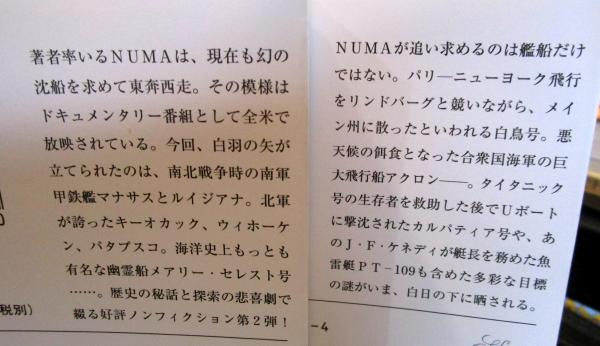 著者率いるNUMAは、現在も幻の
沈船を求めて東奔西走。その模様は
ドキュメンタリー番組として全米で
放映されている。今回、白羽の矢が
立てられたのは、南北戦争時の南軍
甲鉄艦マナサスとルイジアナ。北軍
が誇ったキーオカック、ウィホーケ
ン、パタプスコ。海洋史上もっとも
有名な幽霊船メアリー・セレスト号
……。歴史の秘話と探索の悲喜劇で
綴る好評ノンフィクション第2弾！
税別）
NUMAが追い求めるのは艦船だけ
ではない。パリ―ニューヨーク飛行
をリンドバーグと競いながら、メイ
ン州に散ったといわれる白鳥号。悪
天候の餌食となった合衆国海軍の巨
大飛行船アクロン――。タイタニック
号の生存者を救助した後でUボート
に撃沈されたカルパティア号や、あ
のJ・F・ケネディが艇長を務めた魚
雷艇PT－109も含めた多彩な目標
の謎がいま、白日の下に晒される。
－4